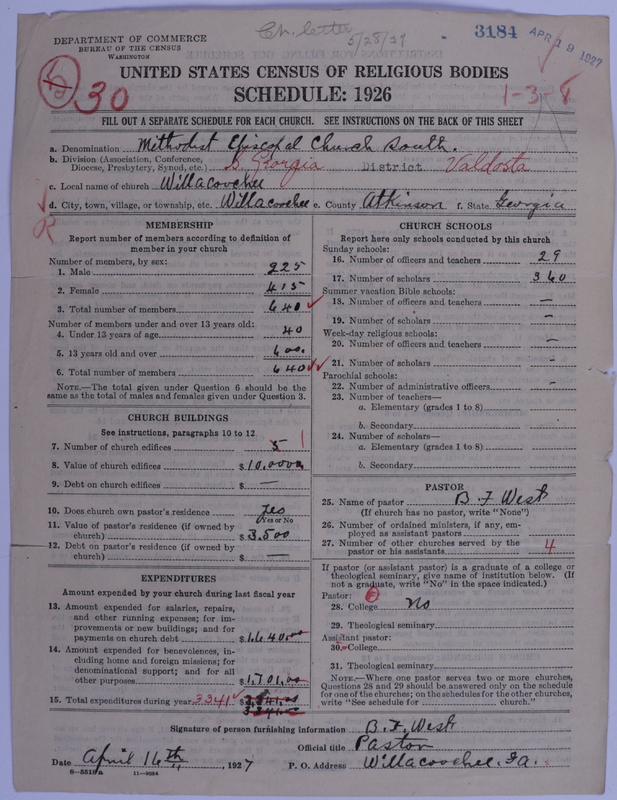 Ch. letter
5/28/29
3184
APR 19 1927
DEPARTMENT OF COMMERCE
BUREAU OF THE CENSUS
WASHINGTON
UNITED STATES CENSUS OF RELIGIOUS BODIES
SCHEDULE: 1926
5
30
1-3-8
FILL OUT A SEPARATE SCHEDULE FOR EACH CHURCH. SEE INSTRUCTIONS ON THE BACK OF THIS SHEET
a. Denomination Methodist Episcopal Church South.
b. Division (Association, Conference,
Diocese, Presbytery, Synod, etc.) S. Georgia District Valdosta
c. Local name of church Willacoochee
d. City, town, village, or township, etc. Willacoochee e. County Atkinson f. State Georgia
R
MEMBERSHIP
Report number of members according to definition of
member in your church
Number of members, by sex:
1. Male 225
2. Female 415
3. Total number of members 640
Number of members under and over 13 years old:
4. Under 13 years of age 40
5. 13 years old and over 600.
6. Total number of members 640
NOTE.—The total given under Question 6 should be the
same as the total of males and females given under Question 3.
CHURCH BUILDINGS
See instructions, paragraphs 10 to 12
7. Number of church edifices 5 1
8. Value of church edifices $10.000
9. Debt on church edifices $ —
10. Does church own pastor's residence Yes
Yes or No
11. Value of pastor's residence (if owned by
church) $3.500
12. Debt on pastor's residence (if owned by
church) $ —
EXPENDITURES
Amount expended by your church during last fiscal year
13. Amount expended for salaries, repairs,
and other running expenses; for im-
provements or new buildings; and for
payments on church debt $
14. Amount expended for benevolences, in-
cluding home and foreign missions; for
denominational support; and for all
other purposes $1,701.00
15. Total expenditures during year 3341 $
3341.00
CHURCH SCHOOLS
Report here only schools conducted by this church
Sunday schools:
16. Number of officers and teachers 29
17. Number of scholars 360
Summer vacation Bible schools:
18. Number of officers and teachers —
19. Number of scholars —
Week-day religious schools:
20. Number of officers and teachers —
21. Number of scholars —
Parochial schools:
22. Number of administrative officers —
23. Number of teachers—
a. Elementary (grades 1 to 8)
b. Secondary
24. Number of scholars—
a. Elementary (grades 1 to 8)
b. Secondary
PASTOR
25. Name of pastor B. F. West
(If church has no pastor, write "None")
26. Number of ordained ministers, if any, em-
ployed as assistant pastors
27. Number of other churches served by the
pastor or his assistants 4
If pastor (or assistant pastor) is a graduate of a college or
theological seminary, give name of institution below. (If
not a graduate, write "No" in the space indicated.)
Pastor:
28. College No
29. Theological seminary
Assistant pastor:
30. College
31. Theological seminary
NOTE.—Where one pastor serves two or more churches,
Questions 28 and 29 should be answered only on the schedule
for one of the churches; on the schedules for the other churches,
write "See schedule for church."
Signature of person furnishing information B. F. West
Official title Pastor
Date April 16th, 1927 P. O. Address Willacoochee, Ga.
8—5518a 11—9034